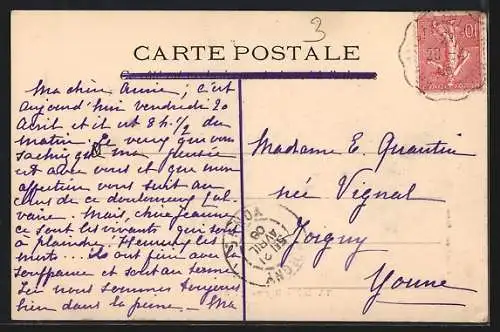 3
CARTE POSTALE
Ma chère Amie, c'est
aujourd'hui vendredi 20
Avril et il est 8 h. 1/2 du
matin. Je veux que vous
sachiez que ma pensée
est avec vous et que mon
affection vous suit au
cours de ce douloureux Cal-
vaire. Mais, chère Jeanne
ce sont les vivants qui sont
à plaindre. Heureux les
morts... ils ont fini avec
souffrance et sont au terme
Ici nous sommes toujours
bien dans la peine — Ma
Madame E. Quantin
née Vignal
Joigny
Yonne
10
JOIGNY
21
AVRIL
YONNE